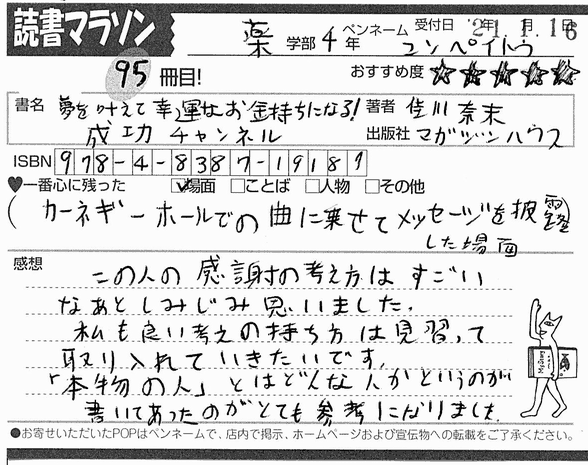 読書マラソン
薬 学部 4 年 ペンネーム コンペイトウ 受付日 '21年1月16日
95 冊目! おすすめ度 ★★★★★
書名 夢を叶えて幸運なお金持ちになる! 著者 佳川 奈未
成功チャンネル 出版社 マガジンハウス
ISBN 978-4-8387-1918-1
♥一番心に残った ☑場面 □ことば □人物 □その他
( カーネギーホールでの曲に乗せてメッセージを披露)
した場面
感想 この人の感謝の考え方はすごい
なあとしみじみ思いました。
私も良い考えの持ち方は見習って
取り入れていきたいです。
「本物の人」とはどんな人かというのが
書いてあったのがとても参考になりました
●お寄せいただいたPOPはペンネームで、店内で掲示、ホームページおよび宣伝物への転載をご了承ください。